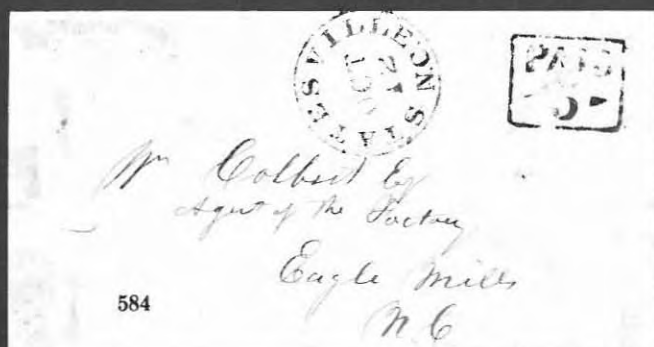 STATESVILLE N.C.
21
OCT
PAID
5
Wm Colbert Esq
Agent of the Factory
Eagle Mills
N C
584